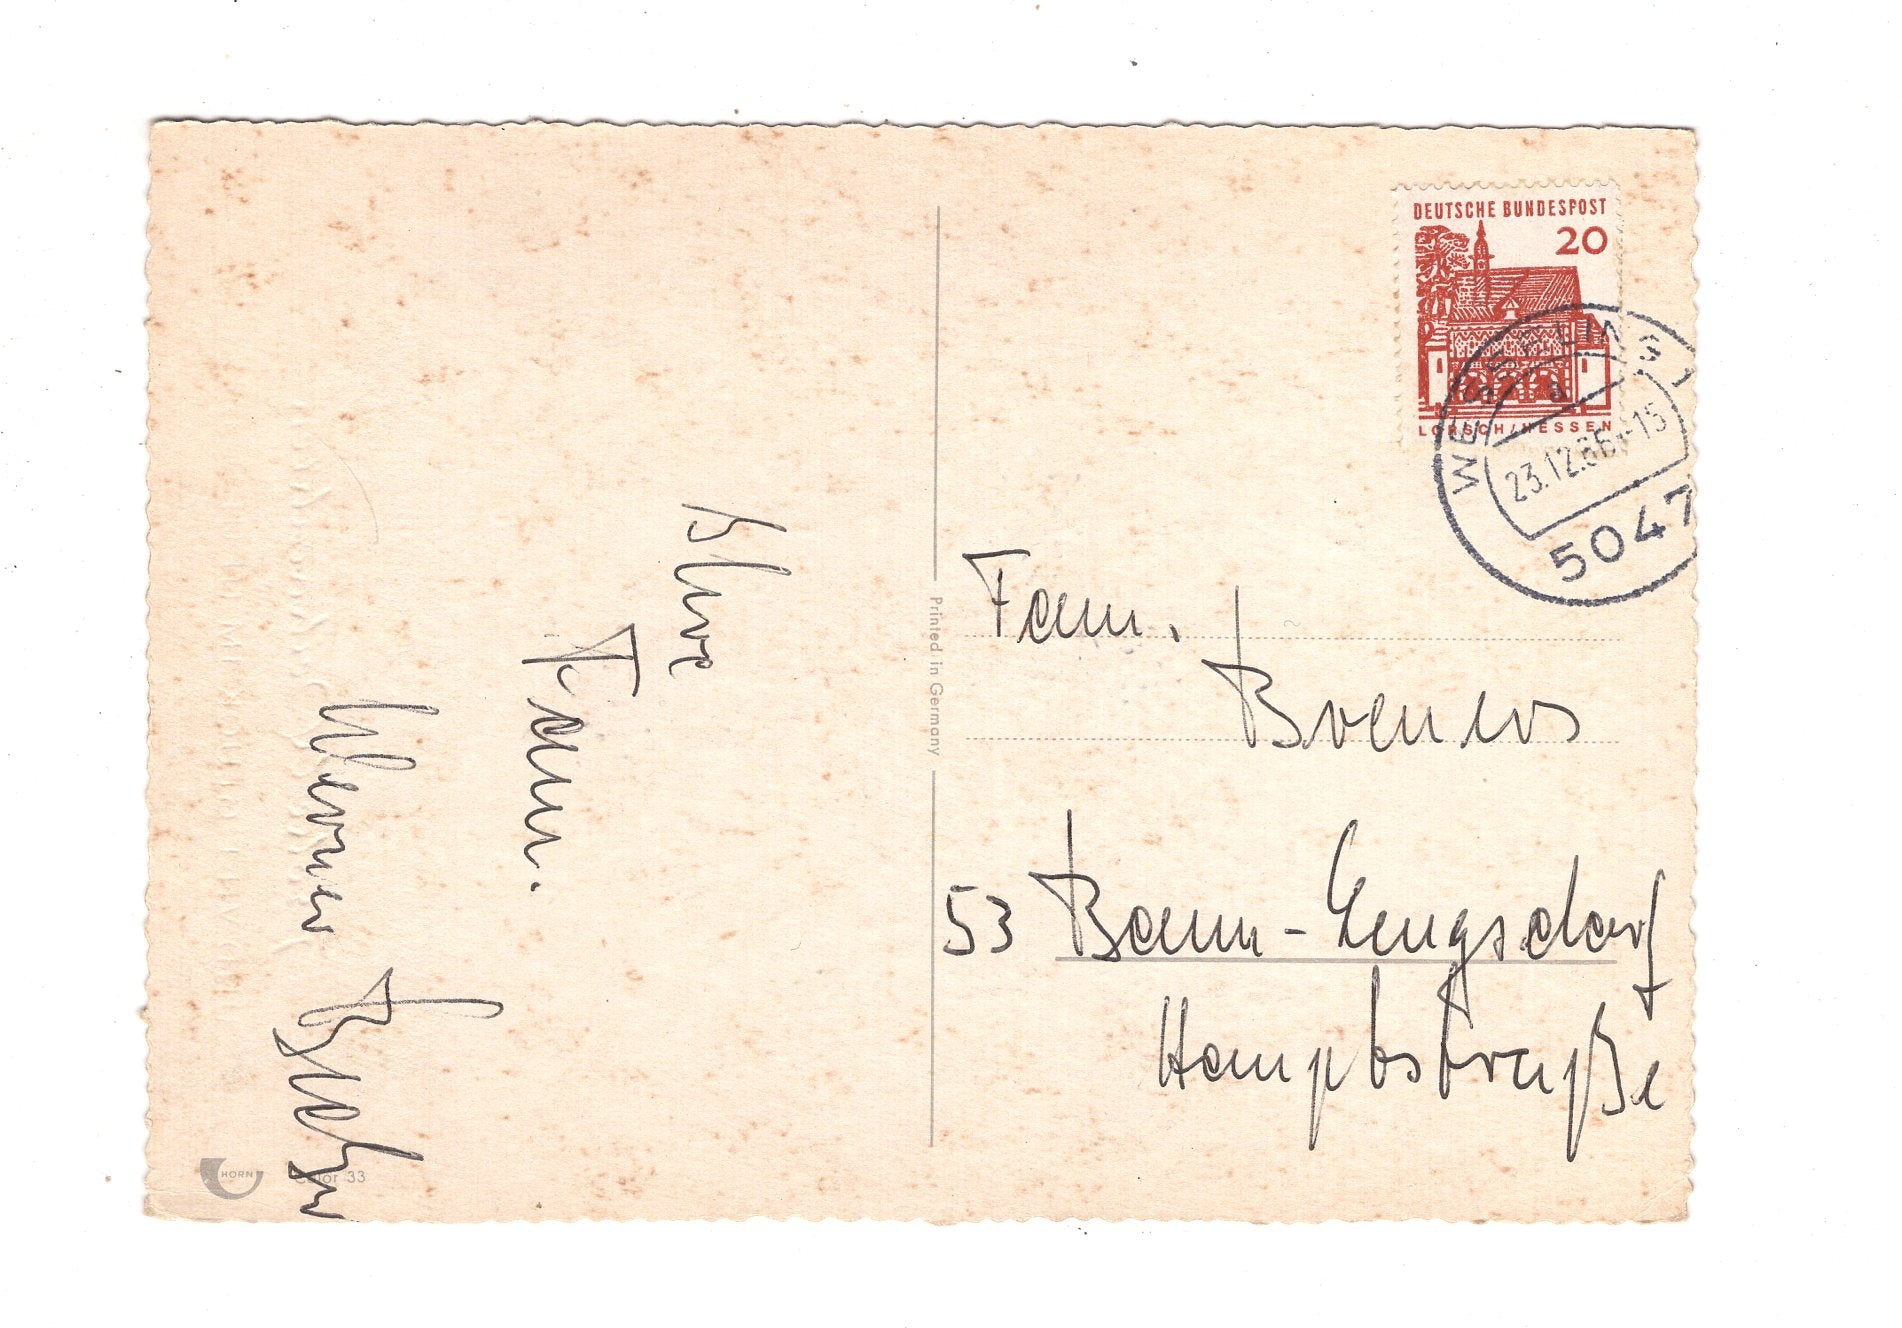 DEUTSCHE BUNDESPOST
20
LORSCH/HESSEN
WESSELING 1
a
23.12.66.-15
5047
Fam.
53 Bonn-Lengsdorf
Hauptstraße
Fam.
Werner
Printed in Germany
HORN
Color 33